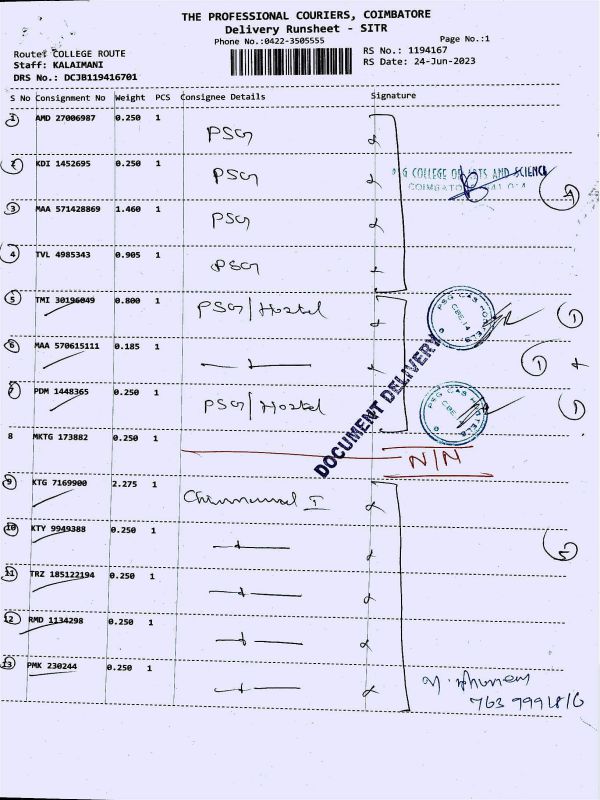 THE PROFESSIONAL COURIERS, COIMBATORE
Delivery Runsheet - SITR
Phone No.:0422-3505555
Page No.:1
Route: COLLEGE ROUTE
RS No.: 1194167
Staff: KALAIMANI
RS Date: 24-Jun-2023
DRS No.: DCJB119416701
S No Consignment No Weight PCS Consignee Details Signature
1 AMD 27006987 0.250 1 PSG
2 KDI 1452695 0.250 1 PSG
COLLEGE OF ARTS AND SCIENCE
4
3 MAA 571428869 1.460 1 PSG
4 TVL 4985343 0.905 1 PSG
5 TMI 30196049 0.800 1 PSG/Hostel
PSG CAS HOSTELS
CBE.14
1
6 MAA 570615111 0.185 1
1
7 PDM 1448365 0.250 1 PSG/Hostel
PSG CAS HOSTELS
1
DOCUMENT DELIVERY
8 MKTG 173882 0.250 1 N/N
9 KTG 7169900 2.275 1
10 KTY 9949388 0.250 1
5
11 TRZ 185122194 0.250 1
12 RMD 1134298 0.250 1
13 PMK 230244 0.250 1